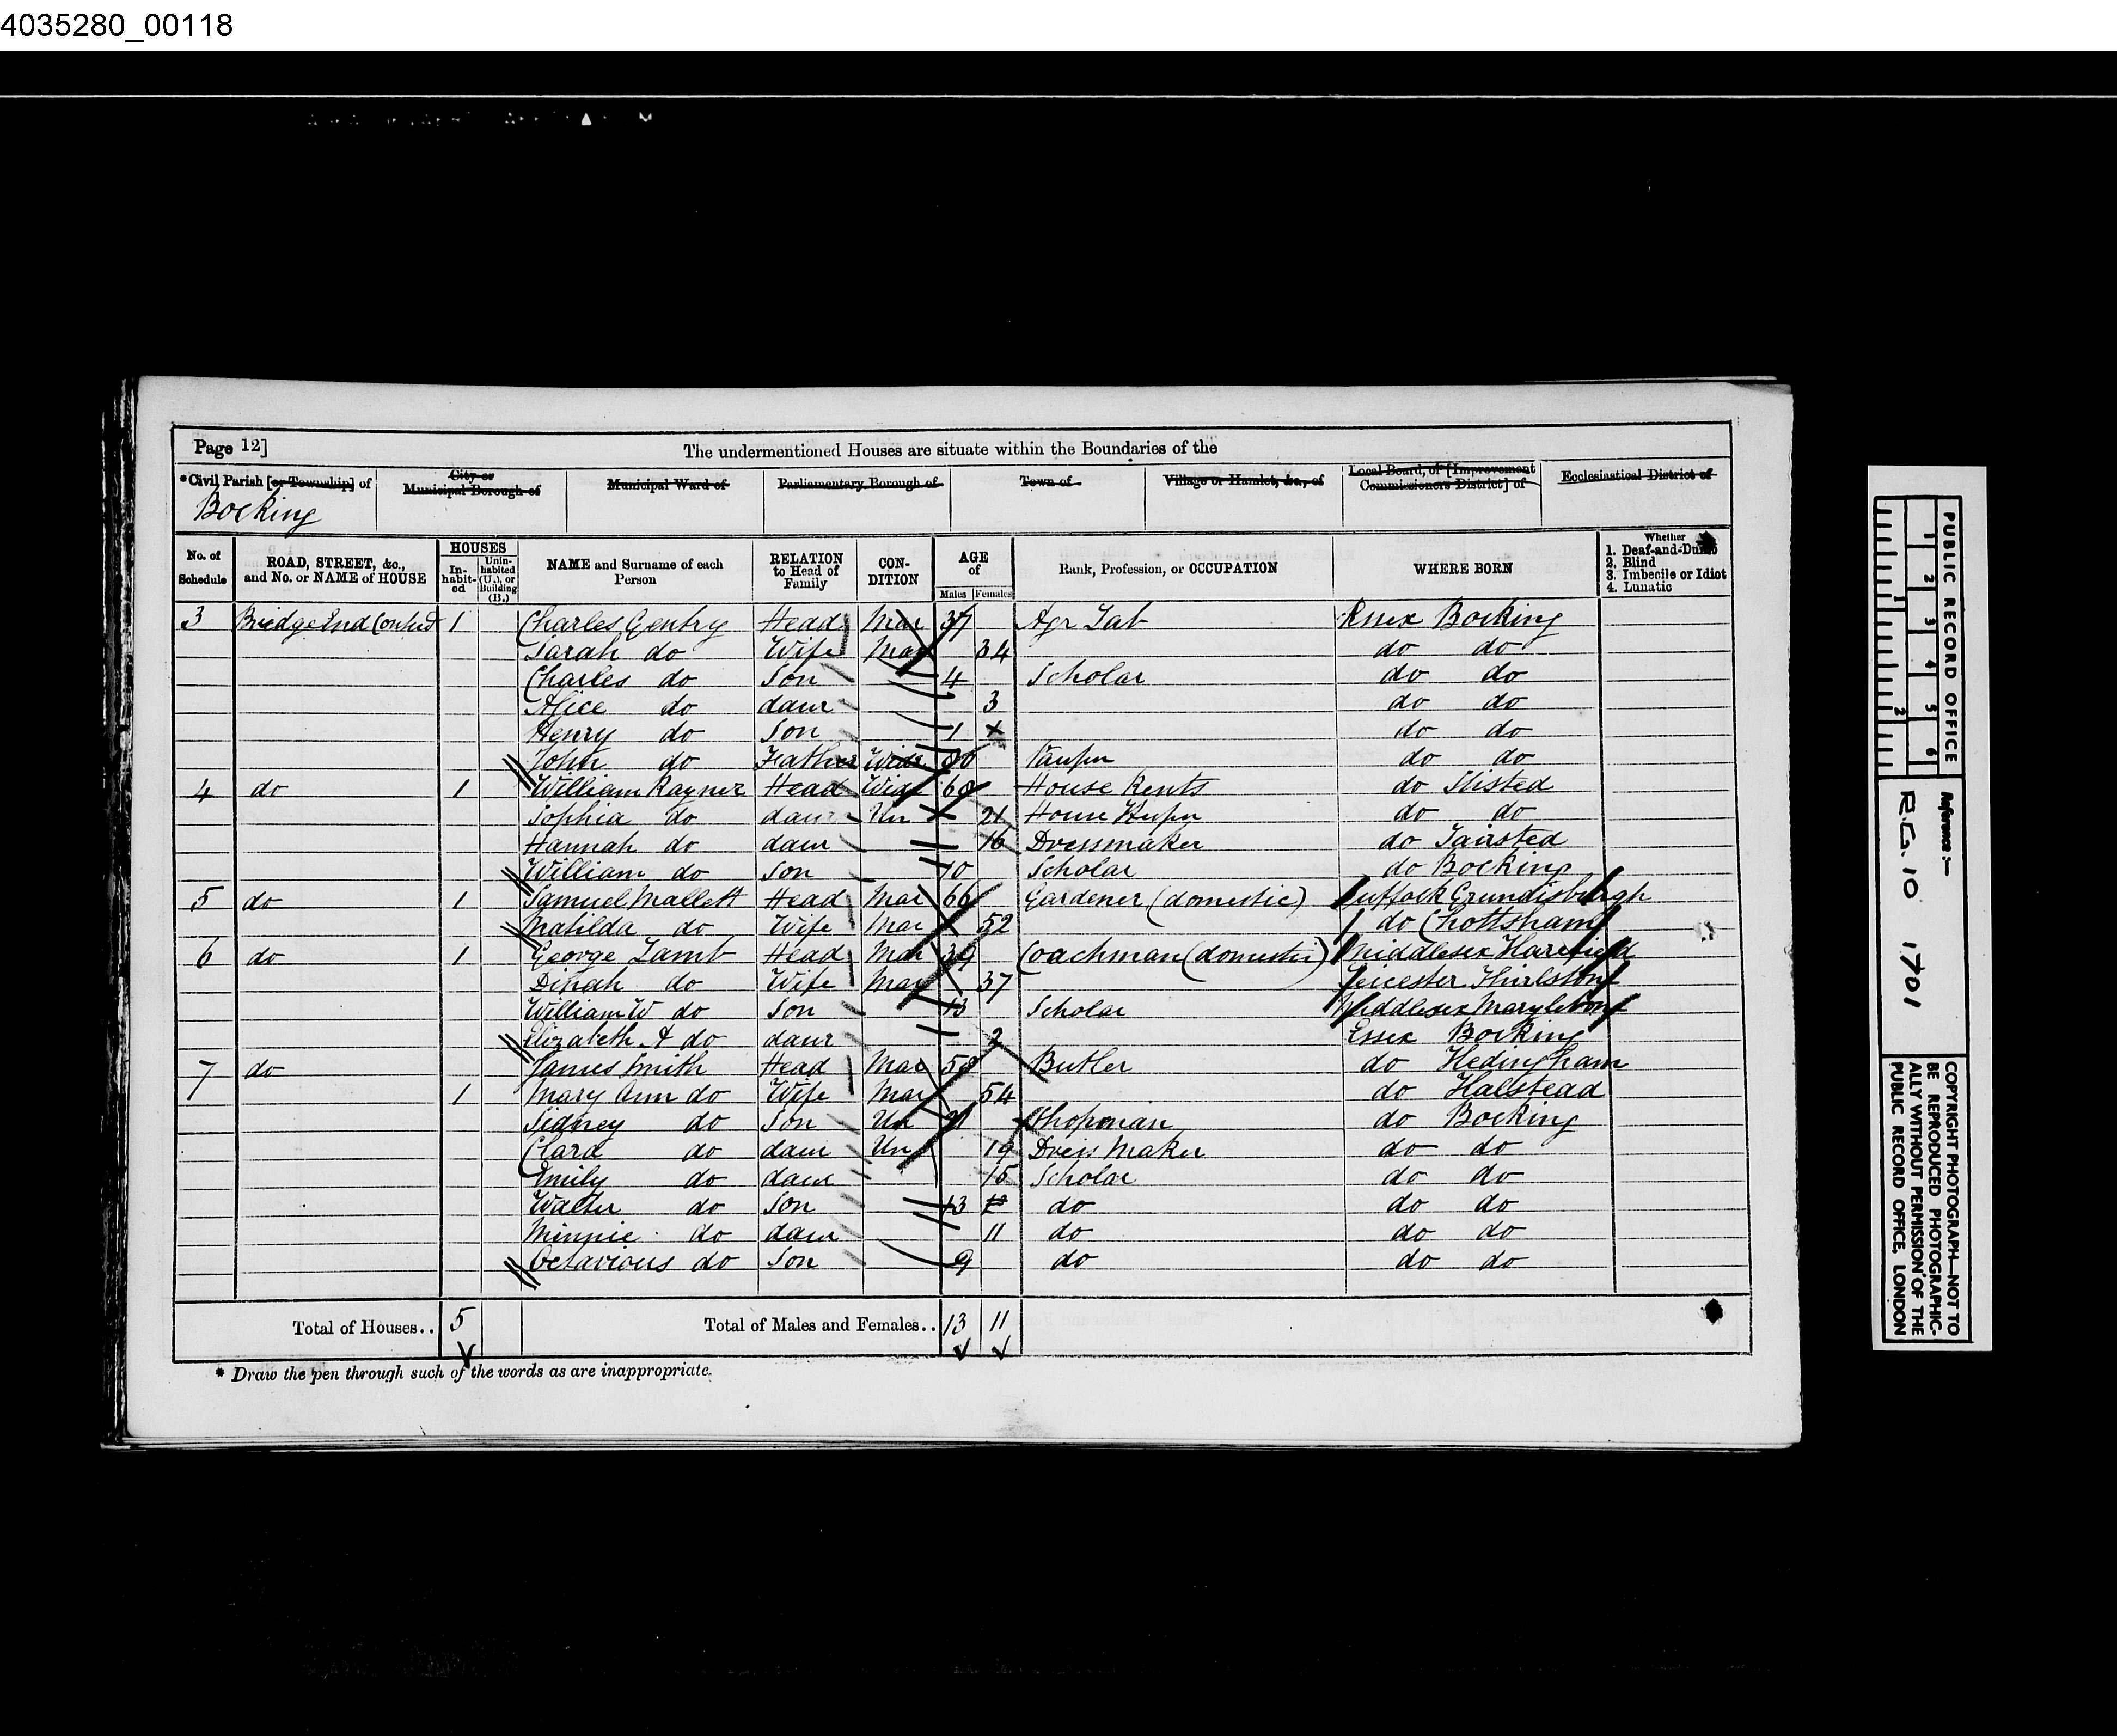 4035280_00118
Page 12]
The undermentioned Houses are situate within the Boundaries of the
*Civil Parish [or Township] of
City or Municipal Borough of
Municipal Ward of
Parliamentary Borough of
Town of
Village or Hamlet, &c., of
Local Board, or [Improvement Commissioners District] of
Ecclesiastical District of
Bocking
No. of Schedule
ROAD, STREET, &c., and No. or NAME of HOUSE
HOUSES
In-habit-ed
Unin-habited (U.), or Building (B.)
NAME and Surname of each Person
RELATION to Head of Family
CON-DITION
AGE of
Males Females
Rank, Profession, or OCCUPATION
WHERE BORN
Whether
1. Deaf-and-Dumb
2. Blind
3. Imbecile or Idiot
4. Lunatic
3 Bridge End 1 Charles Gentry Head Mar 37 Agr Lab Essex Bocking
Sarah do Wife Mar 34 do do
Charles do Son 4 Scholar do do
Alice do daur 3 do do
Henry do Son 1 do do
John do Father Widr 80 Pauper do do
4 do 1 William Rayner Head Widr 60 House Rents do Stisted
Sophia do daur Un 21 House Keeper do do
Hannah do daur 16 Dressmaker do Fairsted
William do Son 10 Scholar do Bocking
5 do 1 Samuel Mallett Head Mar 66 Gardener (domestic) Suffolk Grundisburgh
Matilda do Wife Mar 52 do Chottsham
6 do 1 George Lamb Head Mar 39 Coachman (domestic) Middlesex Harefield
Dinah do Wife Mar 37 Leicester Thurlston
William W do Son 13 Scholar Middlesex Marylebone
Elizabeth A do daur 2 Essex Bocking
7 do James Smith Head Mar 58 Butler do Hedingham
1 Mary Ann do Wife Mar 54 do Halstead
Sidney do Son Un 21 Shopman do Bocking
Clara do daur Un 19 Dress Maker do do
Emily do daur 15 Scholar do do
Walter do Son 13 do do do
Minnie do daur 11 do do do
Octavious do Son 9 do do do
Total of Houses.. 5
Total of Males and Females.. 13 11
* Draw the pen through such of the words as are inappropriate.
PUBLIC RECORD OFFICE
1 2 3 4 5 6
1 2
Reference:—
R.G. 10 1701
COPYRIGHT PHOTOGRAPH—NOT TO
BE REPRODUCED PHOTOGRAPHIC-
ALLY WITHOUT PERMISSION OF THE
PUBLIC RECORD OFFICE, LONDON